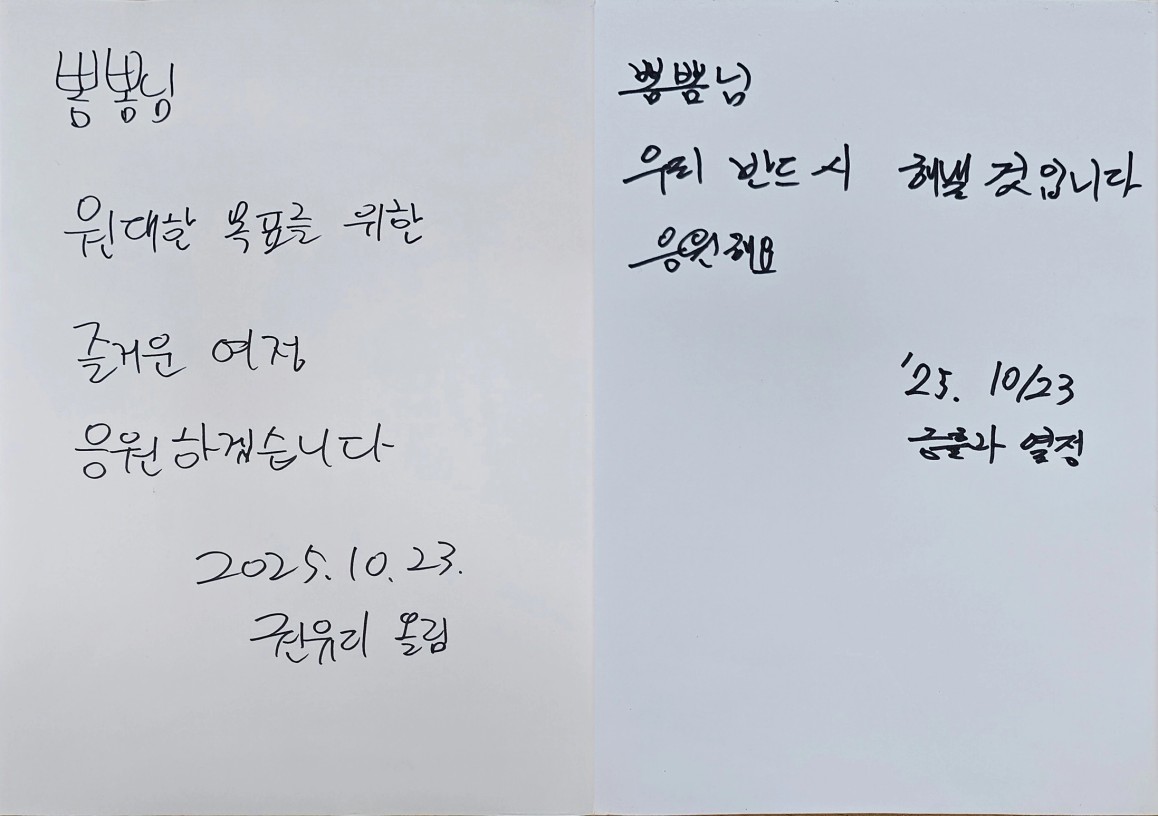 뽐뽐님
원대한 목표를 위한
즐거운 여정
응원하겠습니다
2025. 10. 23.
권유리 올림
뽐뽐님
우리 반드시 해낼 것입니다
응원해요
'25. 10/23
열정